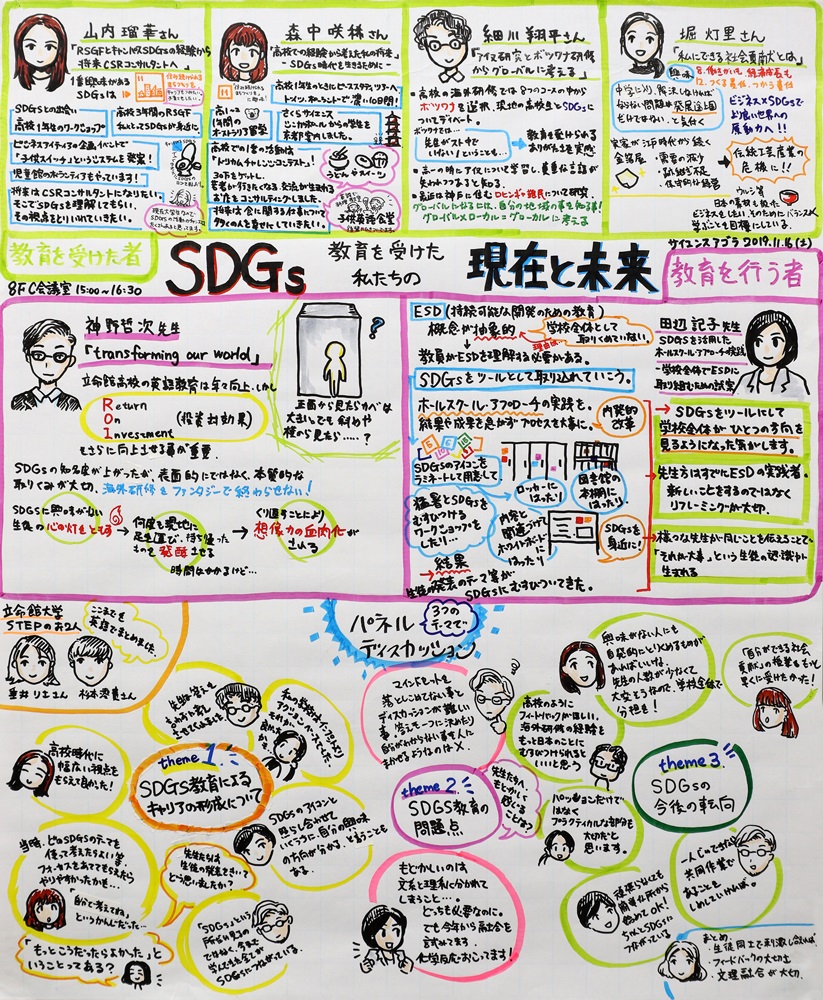 山内 瑠華さん
「RSGFとキャンパスSDGsの経験から
将来CSRコンサルタントへ
1番興味がある
SDGsは→
SDGsとの出会い
高校1年生のワークショップ
高校3年間のRSGF
私にとってSDGsが身近に。
ビジネスアイディアの企画イベントで
「子供スイーツ」というシステムを発案!
児童館のボランティアも行っています!
将来はCSRコンサルタントになりたい。
そこでSDGsを理解してもらい、
その視点をとりいれていきたい。
森中 咲稀さん
「高校での経験から考えた私の将来」
~SDGs時代を生きるために~
高校1年生のときにピースステディツアーへ
ドイツ、ポーランドで濃い10日間!
高1~2
1年間の
オーストラリア留学
さくらサイエンス
高校での1番の活動は
「トリカムチャレンジコンテスト」!
うどんやスイーツ
30万をゲットし、
お店をコンサルティングしました。
将来は食に関する仕事について
多くの人を幸せにしていきたい。
子供食堂会
細川 翔平さん
「アイヌ研究とボツワナ研修
からグローバルに考える」
・高校の海外研修では8つのコースの中から
ボツワナを選択、現地の高校生とSDGsに
ついてディベート。
ボツワナで…
先生がストで
いない!ということも…
→教育を受けられる
ありがたさを実感
・高一の時にアイヌについて学習し、貴重な言語が
失われつつあると知る。
・最近は神戸に住むロヒンギャ難民について研究。
グローバルになるには、自分の地域の事を知る事!
グローバル×ローカル=グローカルに考える
堀 灯里さん
「私にできる社会貢献とは」
興味
8.働きがいも 経済成長も
12.つくる責任、つかう責任
中学に入り、解決しなければ
ならない問題は発展途上国
だけでない。と気付く
ビジネス×SDGsで
より良い世界への
原動力へ!!
実家が江戸時代から続く
金箔屋
・需要の減少
・跡継ぎ不足
・保守的な経営
→伝統工芸産業の
危機に!!
学ぶことを目標にしている。
教育を受けた者
8F C会議室 15:00~16:30
SDGs
教育を受けた
私たちの
現在と未来
サイエンスアゴラ 2019.11.16(土)
教育を行う者
神野哲次先生
「transforming our world」
立命館高校の英語教育は年々向上。しかし
Return
On
Investment
(投資対効果)
もさらに向上させる事が重要。
正面から見たらカベは
大きいでも斜めや
横から見たら……?
?
SDGsの知名度が上がったが、表面的にではなく、本質的な
取りくみが大切。海外研修をファンタジーで終わらせない!
SDGsに興味がない
生徒の心の灯をともす
→何度も現地に
足を運び、持ち帰った
ものを発酵させる
時間はかかるけど…
→くり返すことにより
想像力の血肉化が
される
ESD (持続可能な開発のための教育)
概念が抽象的
理由は
学校全体として
取りくめていない。
↓
教員がESDを理解する必要がある。
SDGsをツールとして取り込れていこう。
ホールスクールアプローチの実践を。
成果や成果を急がずプロセスを大事に。
内発的
改革
SDGsのアイコンを
ラミネートして用意して、
ロッカーに
はったり
図書館の
本棚に
はったり、
授業とSDGsを
むすびつける
ワークショップを
したり…
内容と
関連づけて
ホワイトボードに
はったり
SDGsを
身近に!
結果
→生徒の発表のテーマ等が
SDGsにむすびついてきた。
田辺 記子先生
SDGsを活用した
ホールスクールアプローチの実践
-学校全体でESDに
取り組むための試案
→SDGsをツールにして
学校全体がひとつの方向を
見るようになった気がします。
→先生方はすでにESDの実践者。
新しいことをするのではなく
リフレーミングが大切。
→様々な先生が同じことを伝えることで
「それが大事」という生徒の認識が
生まれる
立命館大学
STEPのお2人
ここまでを
英語でまとめました
パネル
ディスカッション
3つの
テーマで…
theme 1.
SDGS教育による
キャリアの形成について
高校時代に
幅広い視点を
もらえて良かった!
SDGsのアイコンと
照らし合わせて
いくうちに、自分の興味
の方向が分かってきたりすることも
ある。
「自分で考えてね」
というかんじだった…
先生たちは
生徒の発表をきいて
どう思いましたか?
「もっとこうだったらよかった」と
いうことってある?
theme 2.
SDGS教育の
問題点
マインドセットを
落としこめてない事も
先生たちから、
もどかしく
感じることは?
もどかしいのは
文系と理系に分かれて
しまうこと…。
どっちも必要なのに。
でも今年から融合を
試みてます。
化学反応おこってます!
theme 3.
SDGsの
今後の動向
興味がない人にも
自発的にとりくめるものが
あればいいね。
先生の人数が少なくて
大変そうなので、学校全体で
分担を!
「自分ができる社会
貢献」の授業をもっと
早くに受けたかった!
高校のように
フィードバックがほしい。
海外研修の経験を
もっと日本のことに
むすびつけられると
いいと思う
パッションだけで
はなく
プラクティカルな部分も
大切だと
思います。
頑張らなくても
簡単な所から
始めてOK!
ちゃんとSDGsに
つながっている
まとめ
・生徒同士で刺激し合えれば。
・フィードバックの大切さ
・文理融合が大切。